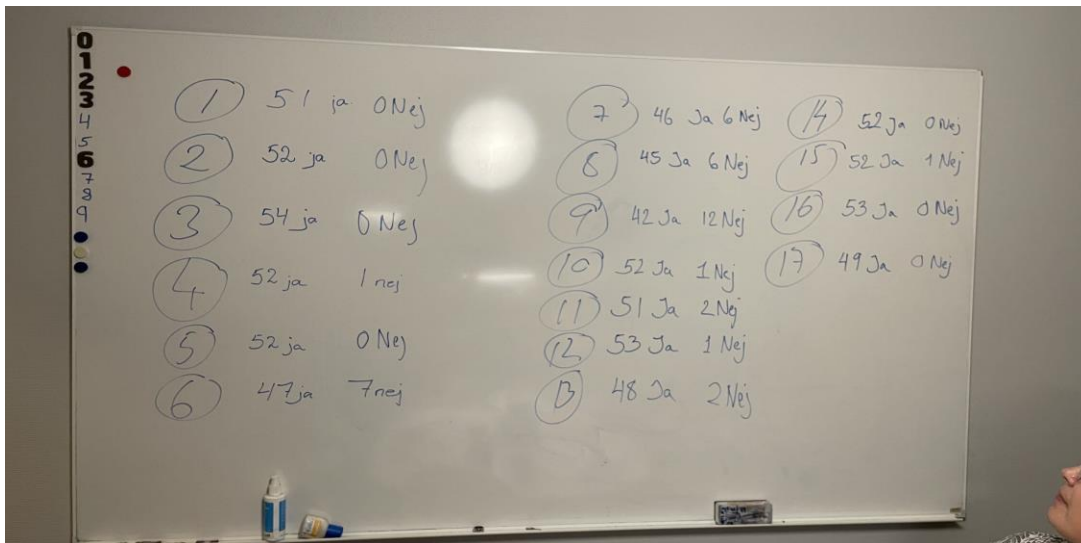 0
1
2
3
4
5
6
7
8
9
1 51 ja 0 Nej
2 52 ja 0 Nej
3 54 ja 0 Nej
4 52 ja 1 nej
5 52 ja 0 Nej
6 47 ja 7 nej
7 46 Ja 6 Nej
8 45 Ja 6 Nej
9 42 Ja 12 Nej
10 52 Ja 1 Nej
11 51 Ja 2 Nej
12 53 Ja 1 Nej
13 48 Ja 2 Nej
14 52 Ja 0 Nej
15 52 Ja 1 Nej
16 53 Ja 0 Nej
17 49 Ja 0 Nej